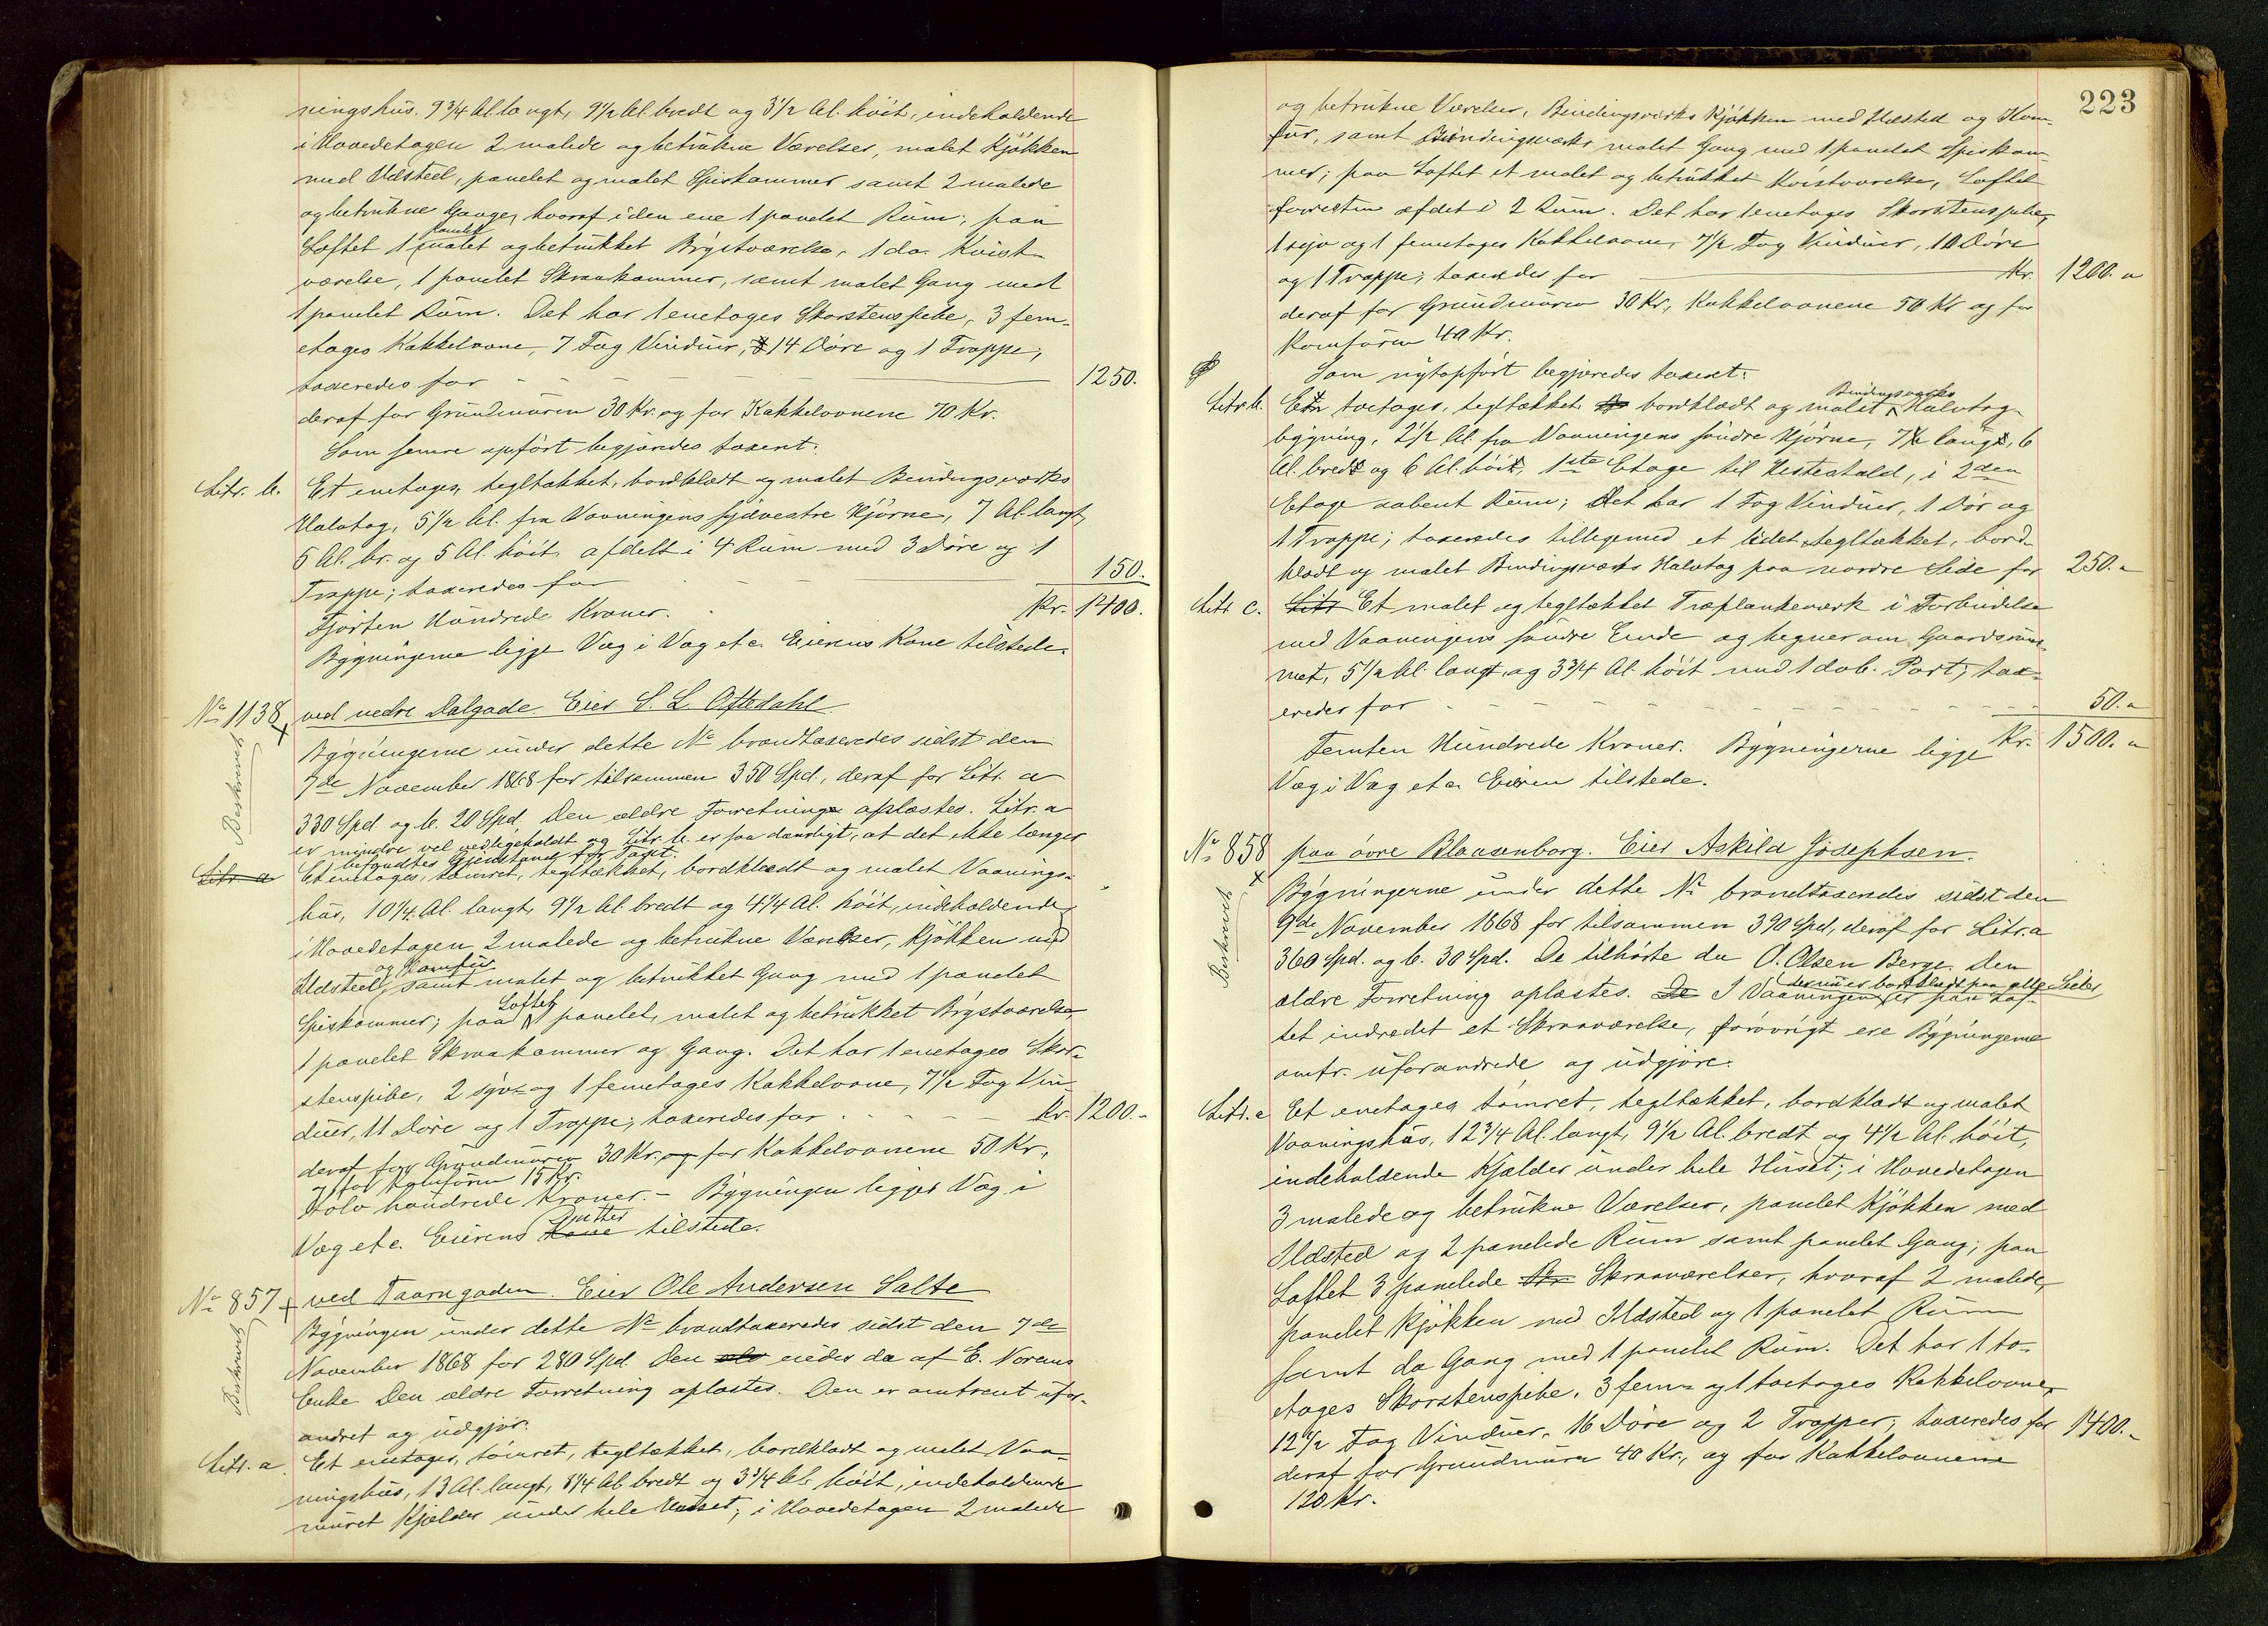 ningshus. 9 3/4 Al. langt, 9 1/2 Al. bredt og 3 1/2 Al. höit, indeholdende
i Hovedetagen 2 malede og betrukne Værelser, malet Kjökken
med Ildsted, panelet og malet Spiskammer samt 2 malede
og betrukne Gange, hvoraf i den ene 1 panelet Rum; paa
Loftet 1 panelet malet og betrukket Brystværelse, 1 do. Kvist-
værelse, 1 panelet Skraakammer, samt malet Gang med
1 panelet Rum. Det har 1 enetages Skorstenspibe, 3 fem-
etages Kakkelovne, 7 Fag Vinduer, 14 Döre og 1 Trappe;
taxeredes for 1250.
deraf for Grundmuren 30 Kr. og for Kakkelovnene 70 Kr.
Som senere opfört begjæredes taxeret:
Litr. b. Et enetages, tegltækket, bordklædt og malet Bindingsværks
Halvtag, 5 1/2 Al. fra Vaaningens sydvestre Hjörne, 7 Al. langt,
5 Al. br. og 5 Al. höit, afdelt i 4 Rum med 3 Döre og 1
Trappe; taxeredes for 150.
Fjorten Hundrede Kroner. Kr. 1400.
Bygningerne ligge Væg i Væg etc. Eierens Kone tilstede.
No 1138 ved nedre Dalgade. Eier S. L. Oftedahl
Beskrevet
Bygningerne under dette No brandtaxeredes sidst den
7de November 1868 for tilsammen 350 Spd., deraf for Litr. a
330 Spd. og b. 20 Spd. Den ældre Forretning oplæstes. Litr. a
er mindre vel vedligeholdt og Litr. b. er saa daarligt, at det ikke længer
befandtes Gjenstand for Taxt.
Litr. a Et enetages, tömret, tegltækket, bordklædt og malet Vaanings-
hus, 10 1/4 Al. langt, 9 1/2 Al. bredt og 4 1/4 Al. höit, indeholdende
i Hovedetagen 2 malede og betrukne Værelser, Kjökken med
Ildsted og Komfur samt malet og betrukket Gang med 1 panelet
Spiskammer; paa Loftet 1 panelet, malet og betrukket Brystværelse
1 panelet Skraakammer og Gang. Det har 1 enetages Skor-
stenspibe, 2 syv- og 1 femetages Kakkelovne, 7 1/2 Fag Vin-
duer, 11 Döre og 1 Trappe; taxeredes for Kr. 1200.-
deraf for Grundmuren 30 Kr. og for Kakkelovnene 50 Kr.,
og for Komfuren 15 Kr.
Tolv hundrede Kroner. - Bygningen ligger Væg i
Væg etc. Eierens Kone Datter tilstede.
No 857 ved Taarngaden. Eier Ole Andersen Salte
Beskrevet
Bygningen under dette No brandtaxeredes sidst den 7de
November 1868 for 280 Spd. Den eiedes da af E. Norems
Enke. Den ældre Forretning oplæstes. Den er omtrent ufor-
andret og udgjör.
Litr. a. Et enetages, tömret, tegltækket, bordklædt og malet Vaa-
ningshus, 13 Al. langt, 8 1/4 Al. bredt og 3 3/4 Al. höit, indeholdende
muret Kjælder under hele Huset; i Hovedetagen 2 malede
223
og betrukne Værelser, Bindingsværks Kjökken med Ildsted og Kom-
fur, samt Bindingsværks malet Gang med 1 panelet Spiskam-
mer; paa Loftet et malet og betrukket Kvistværelse, Loftet
forresten afdelt i 2 Rum. Det har 1 enetages Skorstenspibe,
1 syv og 1 femetages Kakkelovne, 7 1/2 Fag Vinduer, 10 Döre
og 1 Trappe; taxeredes for Kr. 1200.
deraf for Grundmuren 30 Kr., Kakkelovnene 50 Kr og for
Komfuren 40 Kr.
Som nyt opfört begjæredes taxeret:
Litr. b. En toetages, tegltækket bordklædt og malet Bindingsværks Halvtag-
bygning, 2 1/2 Al. fra Vaaningens söndre Hjörne, 7 Al. lang, 6
Al. bred og 6 Al. höi, 1ste Etage til Hestestald, i 2den
Etage aabent Rum; Det har 1 Fag Vinduer, 1 Dör og
1 Trappe; taxeredes tilligemed et lidet tegltækket, bord-
klædt og malet Bindingsværks Halvtag paa nordre Side for 250.
Litr c. Litr Et malet og tegltækket Træplankeværk i Forbindelse
med Vaaningens söndre Ende og hegner om Gaardsrum-
met, 5 1/2 Al. langt, og 3 3/4 Al. höit med 1 dob. Port; tax-
eredes for 50.
Femten Hundrede Kroner. Bygningerne ligge Kr. 1500.
Væg i Væg etc. Eieren tilstede.
No 858 paa övre Blaasenborg. Eier Askild Josephsen.
Beskrevet
Bygningerne under dette No brandtaxeredes sidst den
9de November 1868 for tilsammen 390 Spd, deraf for Litr. a
360 Spd. og b. 30 Spd. De tilhörte da O. Olsen Berge. Den
ældre Forretning oplæstes. De I Vaaningen, der nu er bordklædt paa alle Sider er paa Lof-
tet indredet et Skraaværelse, forövrigt ere Bygningerne
omtr. uforandrede og udgjöre.
Litr. a Et enetages tömret, tegltækket, bordklædt og malet
Vaaningshus, 12 3/4 Al. langt, 9 1/2 Al. bredt og 4 1/2 Al. höit,
indeholdende Kjælder under hele Huset; i Hovedetagen
3 malede og betrukne Værelser, panelet Kjökken med
Ildsted og 2 panelede Rum samt panelet Gang; paa
Loftet 3 panelede Skraaværelser, hvoraf 2 malede,
panelet Kjökken med Ildsted og 1 panelet Rum
samt do Gang med 1 panelet Rum. Det har 1 to-
etages Skorstenspibe, 3 fem- og 1 toetages Kakkelovne,
12 1/2 Fag Vinduer, 16 Döre og 2 Trapper; taxeredes for 1400.-
deraf for Grundmuren 40 Kr., og for Kakkelovnene
120 Kr.